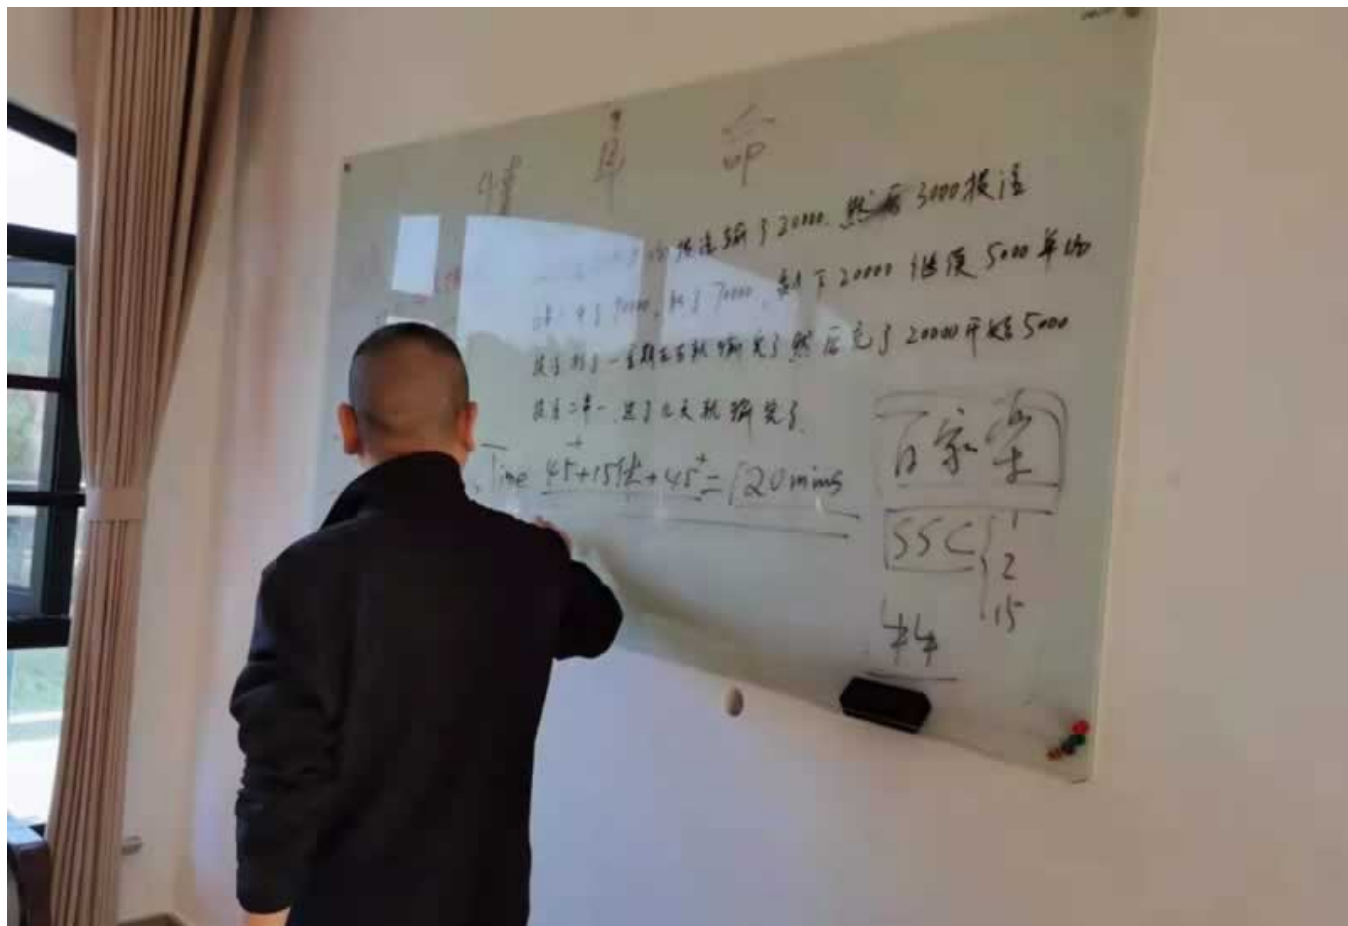 命
投注输了20000. 然后3000投注
中了90000, 取了70000, 剩下20000 继续5000单场
一星期左右就输完了然后充了20000开始5000
投注二串一, 过了几天就输完了.
Time 45+15休+45=120mins
百家乐
SSC 1
2
15
牛牛